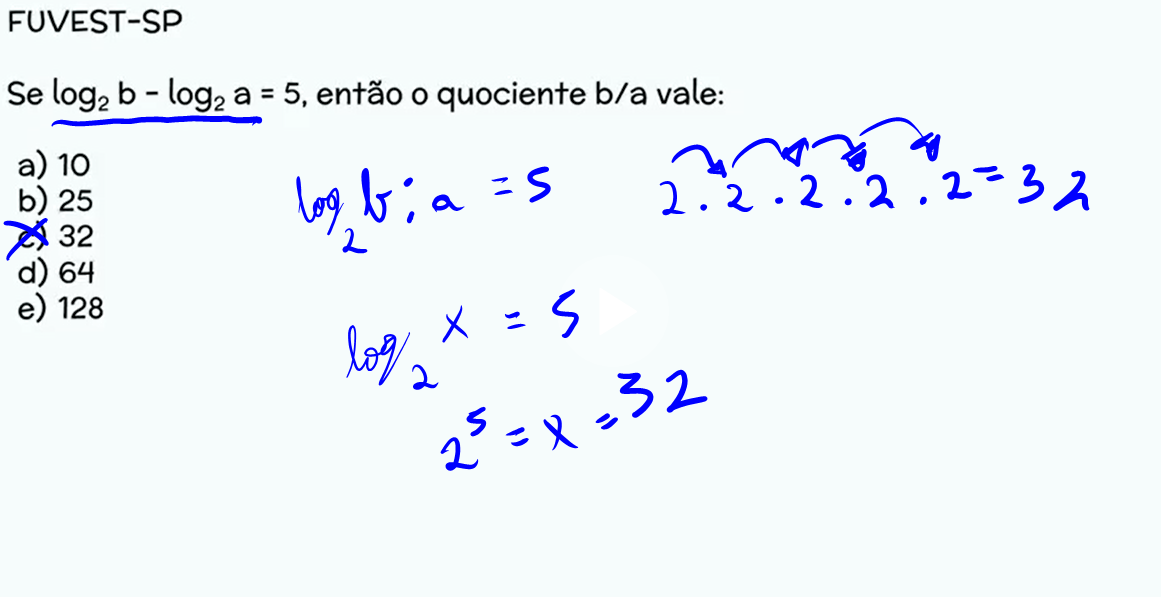 FUVEST-SP
Se log₂ b - log₂ a = 5, então o quociente b/a vale:
a) 10
b) 25
c) 32
d) 64
e) 128
log₂ b : a = 5
2 . 2 . 2 . 2 . 2 = 32
log₂ x = 5
2⁵ = x = 32